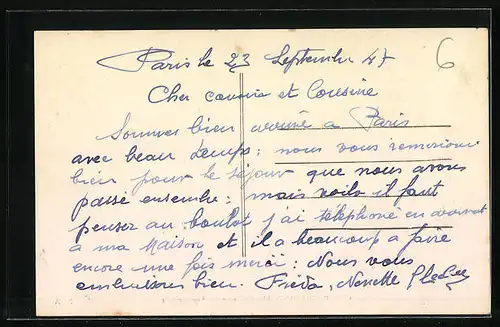 Paris le 23 Septembre 47
6
Cher cousin et Cousine
Sommes bien arrivé a Paris
avec beau temps : nous vous remercions
bien pour le séjour que nous avons
passé ensemble : mais voila il faut
penser au boulot j'ai téléphoné en arrivant
a ma Maison et il a beaucoup a faire
encore une fois merci : Nous vous
embrassons bien. Frieda,